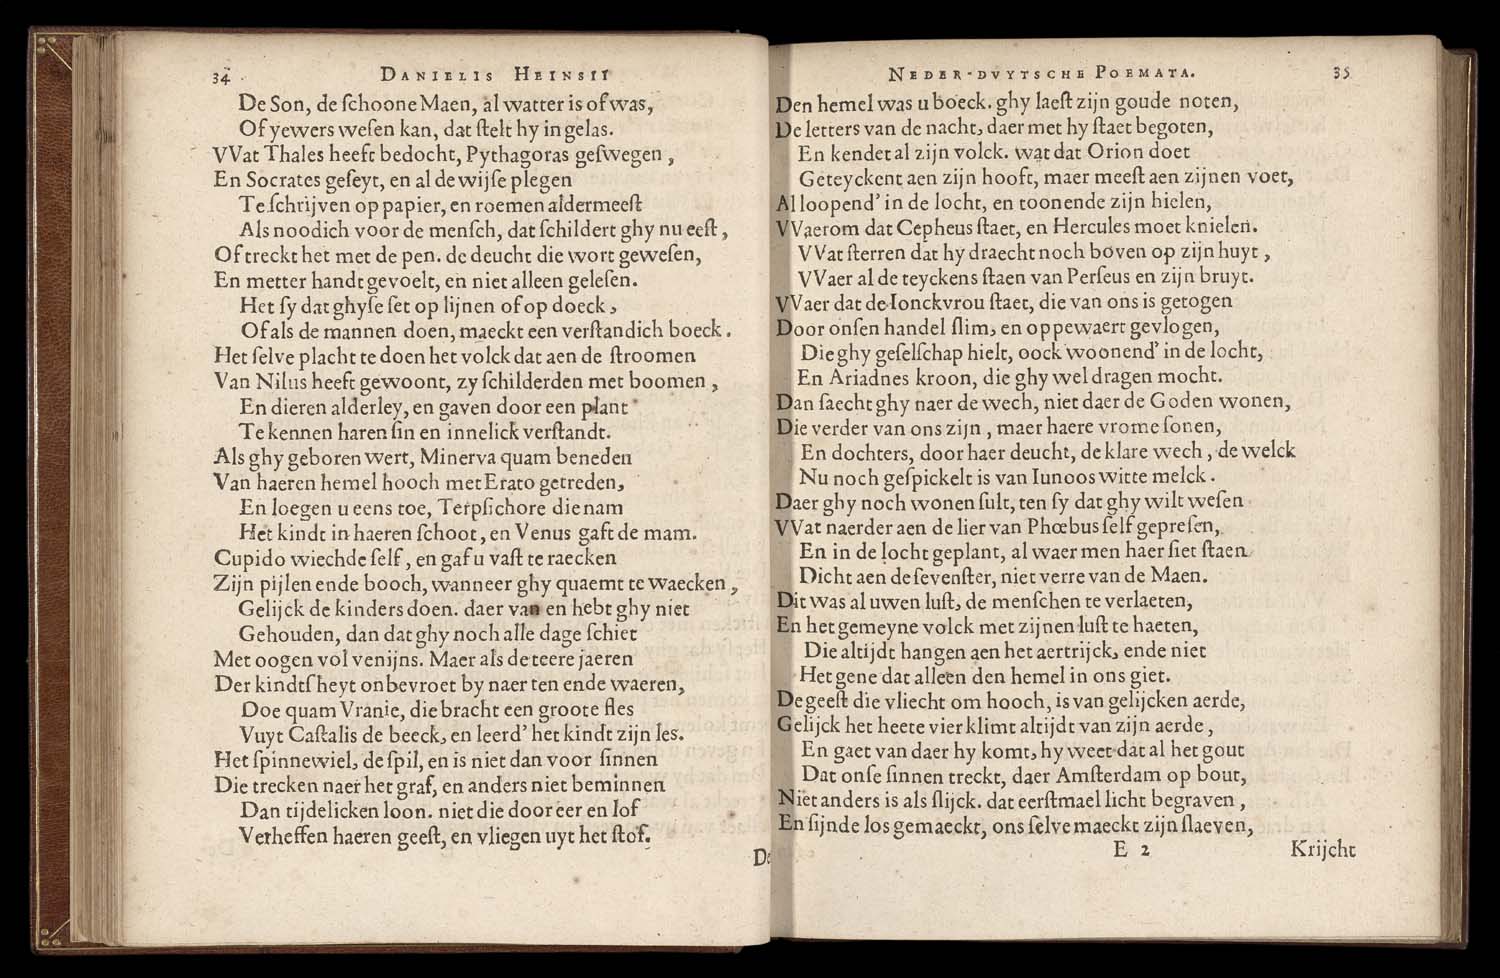 34 DANIELIS HEINSII
De Son, de ſchoone Maen, al watter is of was,
Of yewers weſen kan, dat ſtelt hy in gelas.
VVat Thales heeft bedocht, Pythagoras geſwegen,
En Socrates geſeyt, en al de wijſe plegen
Te ſchrijven op papier, en roemen aldermeeſt
Als noodich voor de menſch, dat ſchildert ghy nu eeſt,
Of treckt het met de pen. de deucht die wort geweſen,
En metter handt gevoelt, en niet alleen geleſen.
Het ſy dat ghyſe ſet op lijnen of op doeck,
Of als de mannen doen, maeckt een verſtandich boeck.
Het ſelve placht te doen het volck dat aen de ſtroomen
Van Nilus heeft gewoont, zy ſchilderden met boomen,
En dieren alderley, en gaven door een plant
Te kennen haren ſin en innelick verſtandt.
Als ghy geboren wert, Minerva quam beneden
Van haeren hemel hooch met Erato getreden,
En loegen u eens toe, Terpſichore die nam
Het kindt in haeren ſchoot, en Venus gaft de mam.
Cupido wiechde ſelf, en gaf u vaſt te raecken
Zijn pijlen ende booch, wanneer ghy quaemt te waecken,
Gelijck de kinders doen. daer van en hebt ghy niet
Gehouden, dan dat ghy noch alle dage ſchiet
Met oogen vol venijns. Maer als de teere jaeren
Der kindtſheyt onbevroet by naer ten ende waeren,
Doe quam Vranie, die bracht een groote fles
Vuyt Caſtalis de beeck, en leerd' het kindt zijn les.
Het ſpinnewiel, de ſpil, en is niet dan voor ſinnen
Die trecken naer het graf, en anders niet beminnen
Dan tijdelicken loon. niet die door eer en lof
Verheffen haeren geeſt, en vliegen uyt het ſtof.
De
NEDER-DVYTSCHE POEMATA. 35
Den hemel was u boeck. ghy laeſt zijn goude noten,
De letters van de nacht, daer met hy ſtaet begoten,
En kendet al zijn volck. wat dat Orion doet
Geteyckent aen zijn hooft, maer meeſt aen zijnen voet,
Al loopend' in de locht, en toonende zijn hielen,
VVaerom dat Cepheus ſtaet, en Hercules moet knielen.
VVat ſterren dat hy draecht noch boven op zijn huyt,
VVaer al de teyckens ſtaen van Perſeus en zijn bruyt.
VVaer dat de Ionckvrou ſtaet, die van ons is getogen
Door onſen handel ſlim, en oppewaert gevlogen,
Die ghy geſelſchap hielt, oock woonend' in de locht,
En Ariadnes kroon, die ghy wel dragen mocht.
Dan ſaecht ghy naer de wech, niet daer de Goden wonen,
Die verder van ons zijn, maer haere vrome ſonen,
En dochters, door haer deucht, de klare wech, de welck
Nu noch geſpickelt is van Iunoos witte melck.
Daer ghy noch wonen ſult, ten ſy dat ghy wilt weſen
VVat naerder aen de lier van Phœbus ſelf gepreſen,
En in de locht geplant, al waer men haer ſiet ſtaen
Dicht aen de ſevenſter, niet verre van de Maen.
Dit was al uwen luſt, de menſchen te verlaeten,
En het gemeyne volck met zijnen luſt te haeten,
Die altijdt hangen aen het aertrijck, ende niet
Het gene dat alleen den hemel in ons giet.
De geeſt die vliecht om hooch, is van gelijcken aerde,
Gelijck het heete vier klimt altijdt van zijn aerde,
En gaet van daer hy komt, hy weet dat al het gout
Dat onſe ſinnen treckt, daer Amſterdam op bout,
Niet anders is als ſlijck. dat eerſtmael licht begraven,
En ſijnde los gemaeckt, ons ſelve maeckt zijn ſlaeven,
E 2 Krijcht